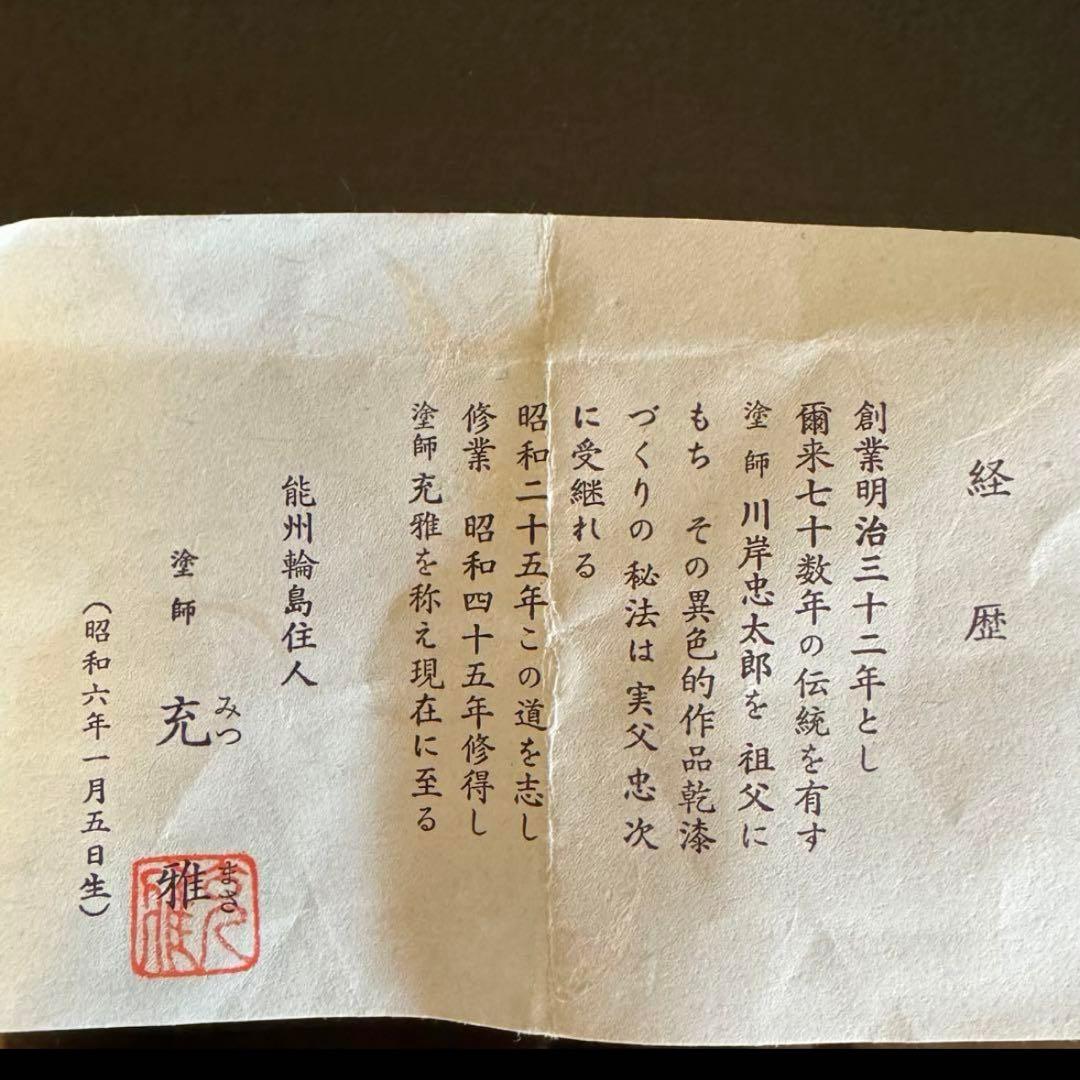 経歴
創業明治三十二年とし
爾来七十数年の伝統を有す
塗師 川岸忠太郎を 祖父に
もち その異色的作品乾漆
づくりの秘法は 実父 忠次
に受継れる
昭和二十五年この道を志し
修業 昭和四十五年修得し
塗師 充雅を称え現在に至る
能州輪島住人
塗師 充雅
みつ まさ
(昭和六年一月五日生)
充雅